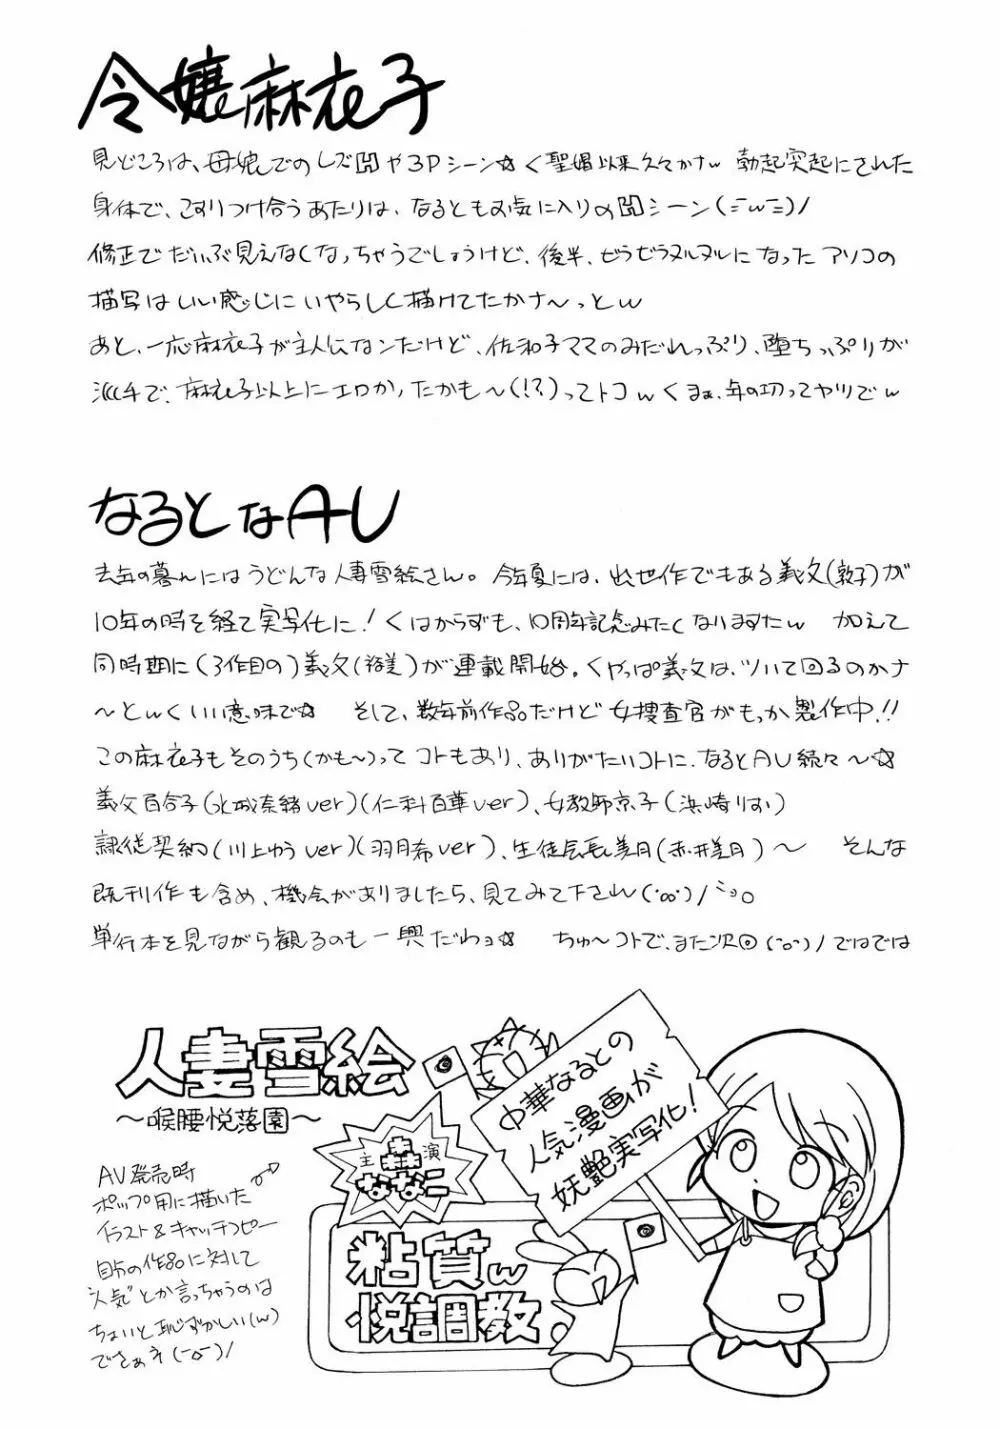 令嬢麻衣子
見どころは、母娘でのレズ闘や3Pシーン☆く聖娼以来久々かナw 勃起突起にされた
身体で、こすりつけ合うあたりは、なるともお気に入りの闘シーン(=w=)/
修正でだいぶ見えなくなっちゃうでしょうけど、後半、ビラビラヌルヌルになったアソコの
描写はいい感じにいやらしく描けてたかナ～っとw
あと、一応麻衣子が主人公なンだけど、佐和子ママのみだれっぷり、堕ちっぷりが
派手で、麻衣子以上にエロかったかも～(!?)ってトコwくまぁ、年の功ってヤツでw
なるとなAV
去年の暮れにはうどんな人妻雪絵さん。今年夏には、出世作でもある義父(敦子)が
10年の時を経て実写化に!くはからずも、10周年記念みたくなりますたw 加えて
同時期に(3作目の)義父(裕美)が連載開始。くやっぱ義父は、ツいて回るのかナ
～とwくいい意味で☆ そして、数年前作品だけど女捜査官がもっか製作中!!
この麻衣子もそのうち(かも～)ってコトもあり、ありがたいコトに、なるとAV続々～☆
義父百合子(水城奈緒ver)(仁科百華ver)、女教師京子(浜崎りお)
隷従契約(川上ゆうver)(羽月希ver)、生徒会長美月(赤井美月)～ そんな
既刊作も含め、機会がありましたら、見てみて下さいw
単行本を見ながら観るのも一興だわョ☆ ちゅ～コトで、また次回(-o-)/ではでは
人妻雪絵
～喉腰悦落園～
主演
森ななこ
中華なるとの
人気漫画が
妖艶実写化!
粘質w
悦調教
AV発売時
ポップ用に描いた
イラスト&キャッチコピー
自分の作品に対して
"人気"とか言っちゃうのは
ちょいと恥ずかしい(w)
でさぁネ(-o-)/